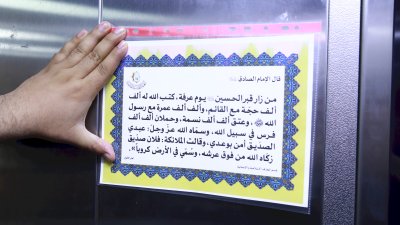 قال الإمام الصادق
من زار قبر الحسين يوم عرفة، كتب الله له ألف
ألف حجّة مع القائم، وألف ألف عمرة مع رسول
الله ﷺ، وعتق ألف ألف نسمة، وحملان ألف ألف
فرس في سبيل الله، وسمّاه الله عزّ وجلّ: عبدي
الصديق آمن بوعدي، وقالت الملائكة: فلان صدّيق
زكّاه الله من فوق عرشه، وسُمّي في الأرض كروبياً».